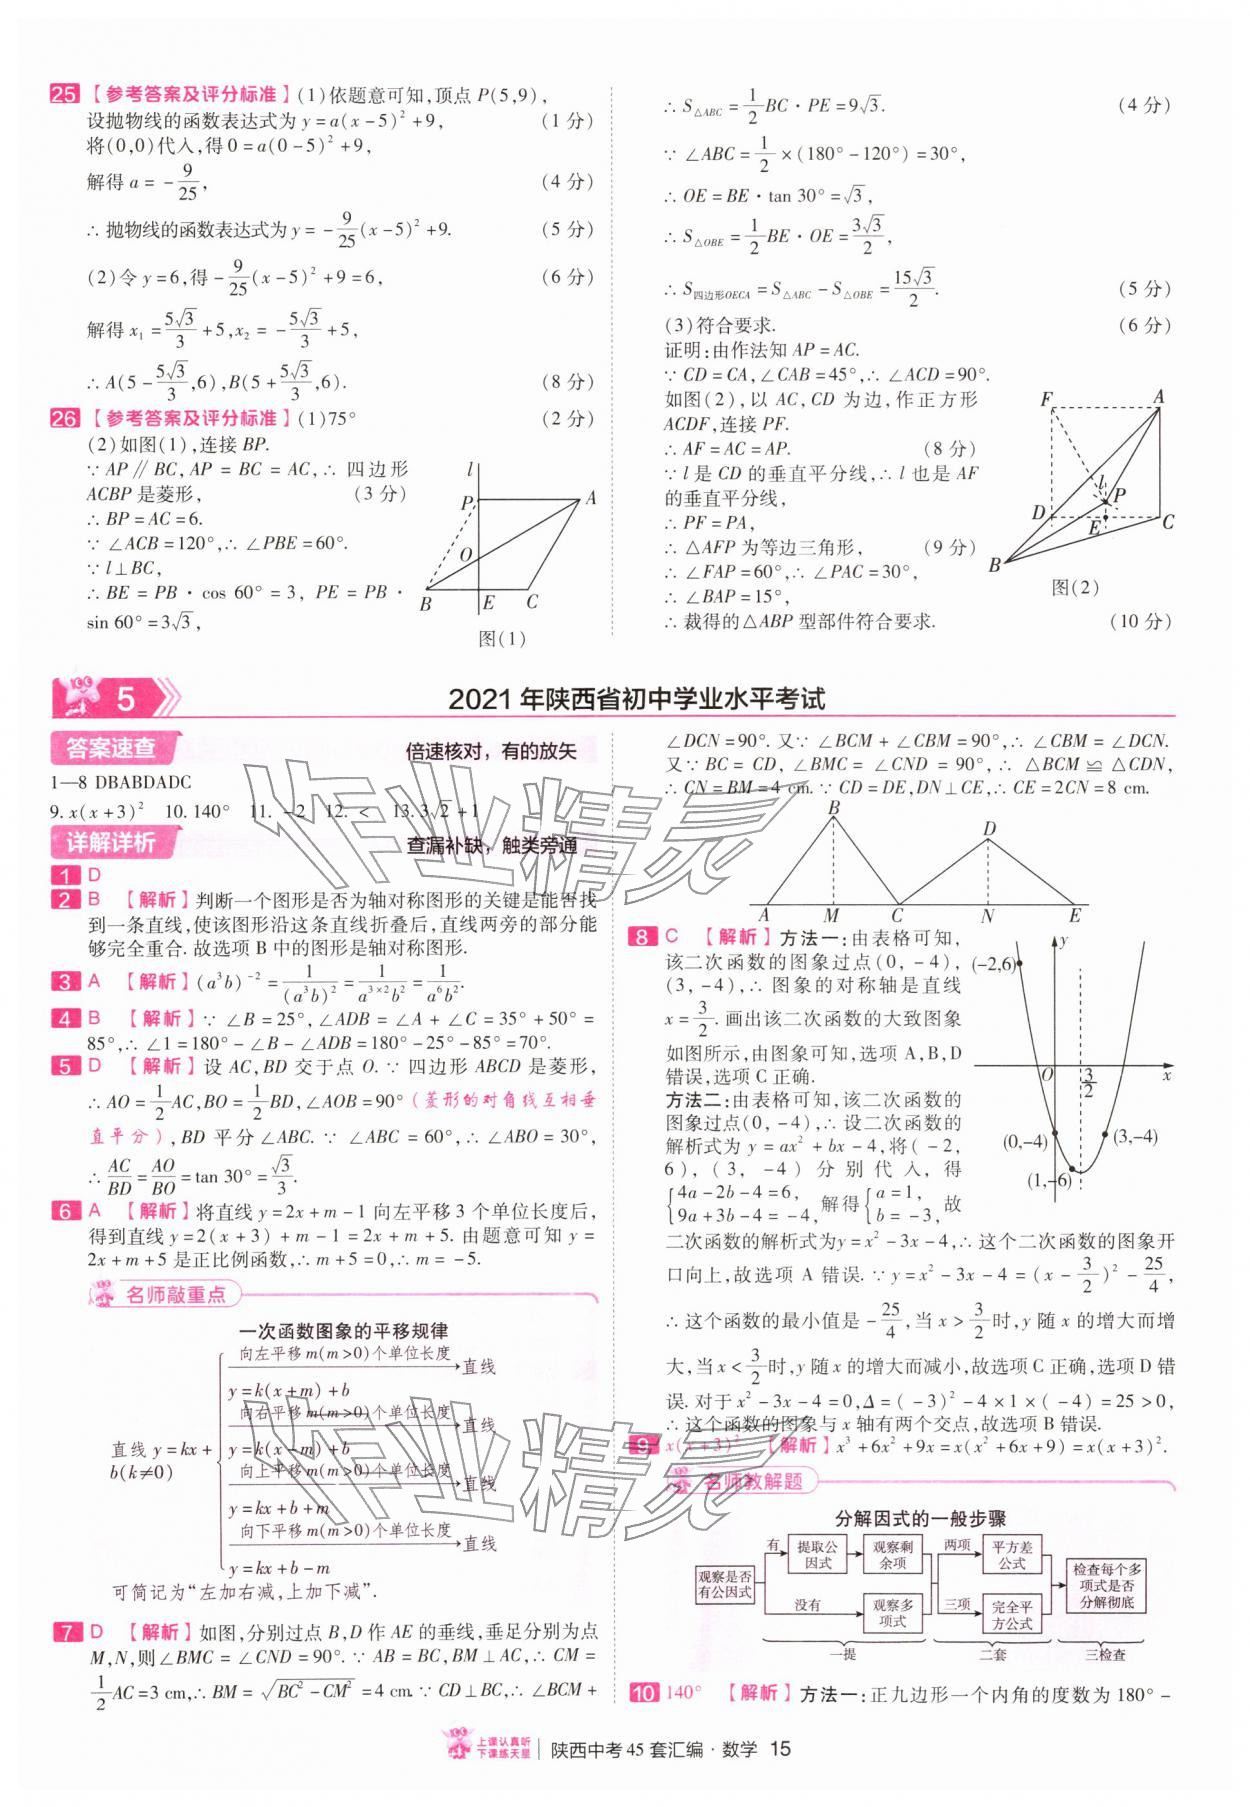 25 【参考答案及评分标准】(1)依题意可知,顶点 P(5,9),
设抛物线的函数表达式为 y=a(x-5)²+9, (1 分)
将(0,0)代入,得 0=a(0-5)²+9,
解得 a=-9/25, (4 分)
∴ 抛物线的函数表达式为 y=-9/25(x-5)²+9. (5 分)
(2)令 y=6,得-9/25(x-5)²+9=6, (6 分)
解得 x₁=5√3/3+5,x₂=-5√3/3+5,
∴ A(5-5√3/3,6),B(5+5√3/3,6). (8 分)
26 【参考答案及评分标准】(1)75° (2 分)
(2)如图(1),连接 BP.
∵ AP∥BC,AP=BC=AC,∴ 四边形
ACBP 是菱形, (3 分)
∴ BP=AC=6.
∵ ∠ACB=120°,∴ ∠PBE=60°.
∵ l⊥BC,
∴ BE=PB·cos 60°=3, PE=PB·
sin 60°=3√3,
l
P
A
O
B
E
C
图(1)
∴ S△ABC=1/2 BC·PE=9√3. (4 分)
∵ ∠ABC=1/2×(180°-120°)=30°,
∴ OE=BE·tan 30°=√3,
∴ S△OBE=1/2 BE·OE=3√3/2,
∴ S四边形OECA=S△ABC-S△OBE=15√3/2. (5 分)
(3)符合要求. (6 分)
证明:由作法知 AP=AC.
∵ CD=CA,∠CAB=45°,∴ ∠ACD=90°.
如图(2),以 AC,CD 为边,作正方形
ACDF,连接 PF.
∴ AF=AC=AP. (8 分)
∵ l 是 CD 的垂直平分线,∴ l 也是 AF
的垂直平分线,
∴ PF=PA,
∴ △AFP 为等边三角形, (9 分)
∴ ∠FAP=60°,∴ ∠PAC=30°,
∴ ∠BAP=15°,
∴ 裁得的△ABP 型部件符合要求. (10 分)
F
A
l
P
D
E
C
B
图(2)
5 2021 年陕西省初中学业水平考试
答案速查 倍速核对，有的放矢
1—8 DBABDADC
9. x(x+3)² 10. 140° 11. -2 12. < 13. 3√2+1
详解详析 查漏补缺，触类旁通
1 D
2 B 【解析】判断一个图形是否为轴对称图形的关键是能否找
到一条直线,使该图形沿这条直线折叠后,直线两旁的部分能
够完全重合. 故选项 B 中的图形是轴对称图形.
3 A 【解析】(a³b)⁻²=1/(a³b)²=1/a³ˣ²b²=1/a⁶b².
4 B 【解析】∵ ∠B=25°,∠ADB=∠A+∠C=35°+50°=
85°,∴ ∠1=180°-∠B-∠ADB=180°-25°-85°=70°.
5 D 【解析】设 AC,BD 交于点 O. ∵ 四边形 ABCD 是菱形,
∴ AO=1/2 AC,BO=1/2 BD,∠AOB=90°(菱形的对角线互相垂
直平分),BD 平分∠ABC. ∵ ∠ABC=60°,∴ ∠ABO=30°,
∴ AC/BD=AO/BO=tan 30°=√3/3.
6 A 【解析】将直线 y=2x+m-1 向左平移 3 个单位长度后,
得到直线 y=2(x+3)+m-1=2x+m+5. 由题意可知 y=
2x+m+5 是正比例函数,∴ m+5=0,∴ m=-5.
名师敲重点
一次函数图象的平移规律
直线 y=kx+
b(k≠0)
向左平移 m(m>0)个单位长度 直线
y=k(x+m)+b
向右平移 m(m>0)个单位长度 直线
y=k(x-m)+b
向上平移 m(m>0)个单位长度 直线
y=kx+b+m
向下平移 m(m>0)个单位长度 直线
y=kx+b-m
可简记为“左加右减,上加下减”.
7 D 【解析】如图,分别过点 B,D 作 AE 的垂线,垂足分别为点
M,N,则∠BMC=∠CND=90°. ∵ AB=BC,BM⊥AC,∴ CM=
1/2 AC=3 cm,∴ BM=√(BC²-CM²)=4 cm. ∵ CD⊥BC,∴ ∠BCM+
∠DCN=90°. 又∵ ∠BCM+∠CBM=90°,∴ ∠CBM=∠DCN.
又∵ BC=CD,∠BMC=∠CND=90°,∴ △BCM≌△CDN,
∴ CN=BM=4 cm. ∵ CD=DE,DN⊥CE,∴ CE=2CN=8 cm.
B
D
A
M
C
N
E
8 C 【解析】方法一:由表格可知,
该二次函数的图象过点(0,-4),
(3,-4),∴ 图象的对称轴是直线
x=3/2. 画出该二次函数的大致图象
如图所示,由图象可知,选项 A,B,D
错误,选项 C 正确.
方法二:由表格可知,该二次函数的
图象过点(0,-4),∴ 设二次函数的
解析式为 y=ax²+bx-4,将(-2,
6),(3,-4)分别代入,得
{4a-2b-4=6, 9a+3b-4=-4, 解得{a=1, b=-3, 故
y
(-2,6)
O
3/2
x
(0,-4)
(3,-4)
(1,-6)
二次函数的解析式为y=x²-3x-4,∴ 这个二次函数的图象开
口向上,故选项 A 错误. ∵ y=x²-3x-4=(x-3/2)²-25/4,
∴ 这个函数的最小值是-25/4,当 x>3/2时,y 随 x 的增大而增
大,当 x<3/2时,y 随 x 的增大而减小,故选项 C 正确,选项 D 错
误. 对于 x²-3x-4=0,Δ=(-3)²-4×1×(-4)=25>0,
∴ 这个函数的图象与 x 轴有两个交点,故选项 B 错误.
9 x(x+3)² 【解析】x³+6x²+9x=x(x²+6x+9)=x(x+3)².
名师教解题
分解因式的一般步骤
观察是否有公因式
有
提取公因式
观察剩余项
两项
平方差公式
检查每个多项式是否分解彻底
没有
观察多项式
三项
完全平方公式
一提
二套
三检查
10 140° 【解析】方法一:正九边形一个内角的度数为 180°-
上课认真听
下课练天星
陕西中考 45 套汇编·数学 15
作业精灵
作业精灵